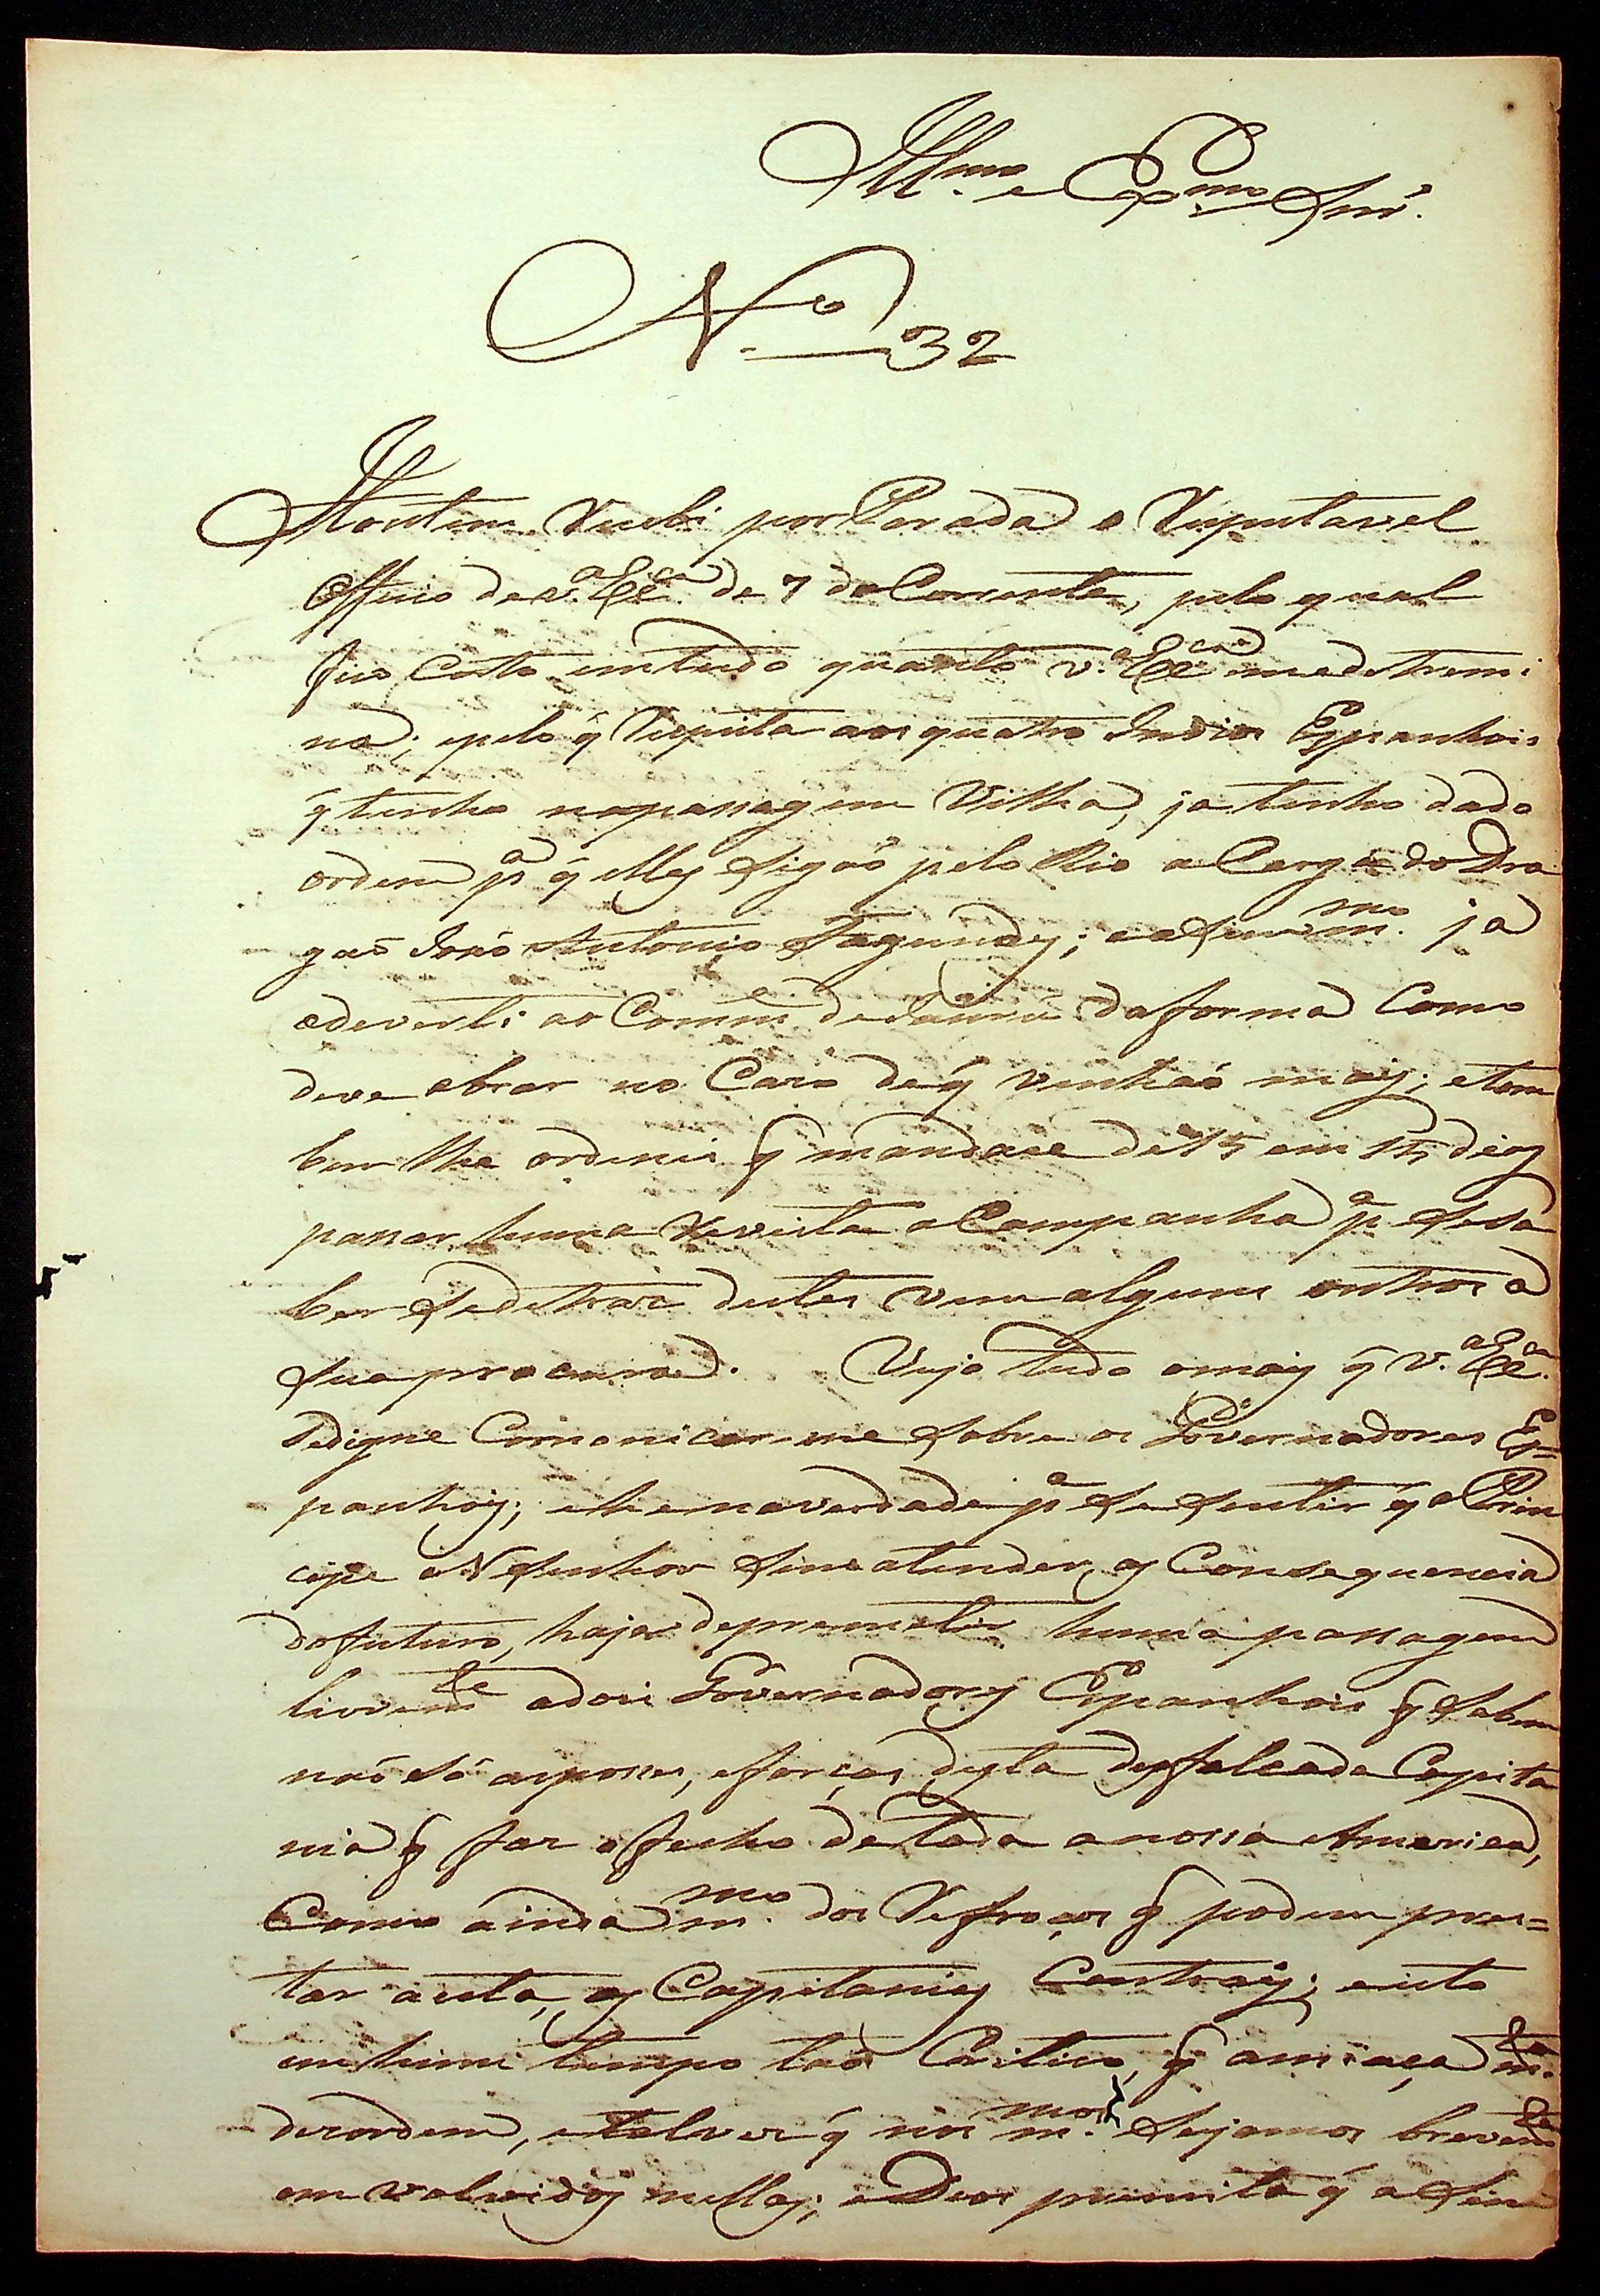 Illmo. e Exmo. Snr.
No. 32
Hontem Recebi por Parada o Respeitavel
Officio de V.a Exca. de 7 do Corrente, pelo qual
fico certo em tudo quanto V.a Exca. me detremi
na; e pelo q̃ Respeita aos quatro Indios Espanhois
q̃ tenho na passagem Velha, ja tenho dado
ordem pa. q̃ elles sigaõ pelo Rio a Cargo do Dra
gaõ Joaõ Antonio Fagundes; e asim mmo. ja
adeverti ao Comme. de Jaurú da forma Como
deve obrar no Cazo de q̃ venhaõ mais; e tam
bem lhe ordenei q̃ mandace de 15 em 15 dias
passar huma Revista a Campanha pa. se sa
ber se detraz destes vem alguns outros a
sua procura. Vejo tudo o mais q̃ V.a Exca.
se digne Comonicar-me sobre os Governadores Es=
panhois; e he na verdade pa. se sentir q̃ o Prin
cipe N. Senhor sem atender, as Consequencia
do futuro, haja de premetir huma passagem
livremte. a dois Governadores Espanhois q̃ sabem
naõ só as posses, e forças desta desfalcada Capita
nia q̃ faz o fecho de toda a nossa America,
Como ainda mmo. dos Refroços q̃ podem pres=
tar a esta, as Capitanias Centrais; e isto
em hum tempo taõ Critico, q̃ ameaça mta.
dezordem, e talvez q̃ nós mmos. sejamos brevemte.
em volvidos nellas; e Deos premita q̃ asim